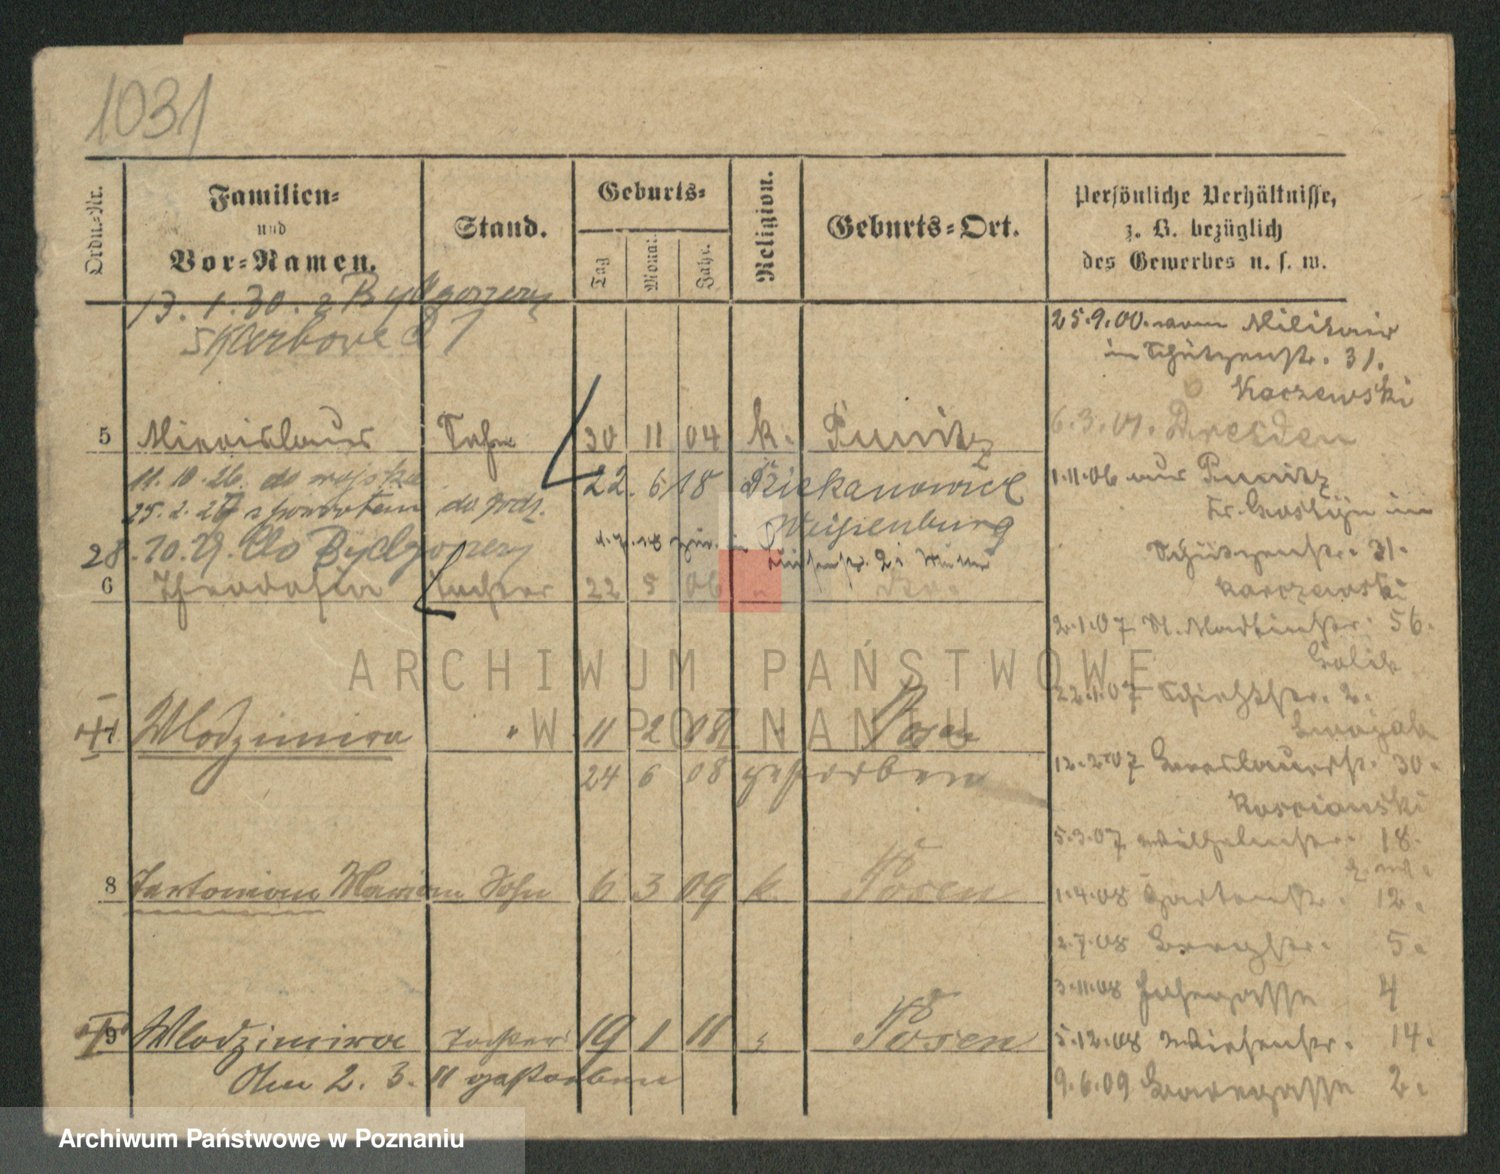 1031
Ordn.-Nr.
Familien-
und
Vor-Namen.
Stand.
Geburts-
Tag
Mona:
Jahr.
Religion.
Geburts-Ort.
Persönliche Verhältnisse,
z. B. bezüglich
des Gewerbes u. s. w.
13. 1. 30. z Bydgoszczy
Skarbowa
25.9.00. vom Militair
in Schützenstr. 31.
Kaczewski
5 Miecislaus Sohn 30 11 04 k. Punitz
6.3.01. Dresden
11. 10. 26. do wojska
22. 6 18 Dziekanowice
1.11.06 aus Punitz
25. 2. 27 z powrotem do
Kr. Gostyn in
Weißenburg
Schützenstr. 31.
28. 10. 29. do Bydgoszczy
6 Theodosia Tochter 22 5 06 "
Karczewski
2.1.07 St. Martinstr. 56.
22.1.07 Schiffstr. 2.
7 Wlodzimira " 11 2 08 " Posen
24 6 08 gestorben
12.2.07 Breslauerstr. 30.
5.3.07 Wilhelmstr. 18.
8 Marian Sohn 6 3 09 k. Posen
1.4.08 Gartenstr. 12.
2.7.08 Bergstr. 5.
3.11.08 4
9 Wlodzimira Tochter 19 1 11 " Posen
5.12.08 Wiesenstr. 14.
Am 2. 3. 11 gestorben
9.6.09 2.
ARCHIWUM PAŃSTWOWE
W POZNANIU
Archiwum Państwowe w Poznaniu